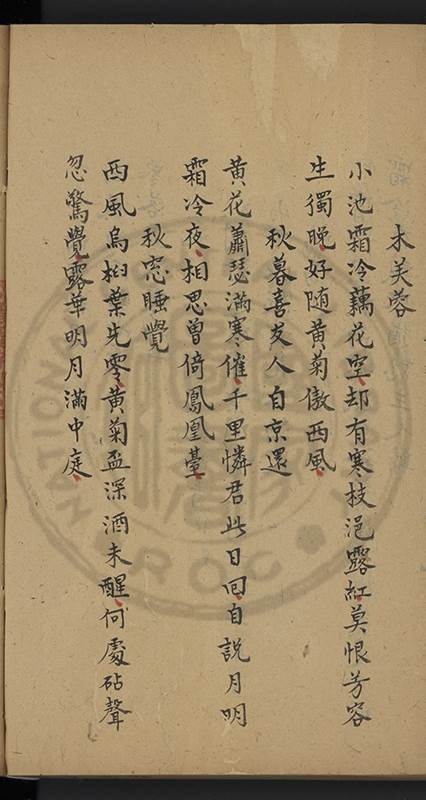 木芙蓉
小池霜冷藕花空却有寒枝浥露紅莫恨芳容
生獨晚好随黄菊傲西風
秋暮喜友人自京還
黄花蕭瑟滿寒催千里憐君此日回自說月明
霜冷夜相思曾倚鳳凰臺
秋窓睡覺
西風烏桕葉先零黄菊盃深酒未醒何處砧聲
忽驚覺露華明月滿中庭